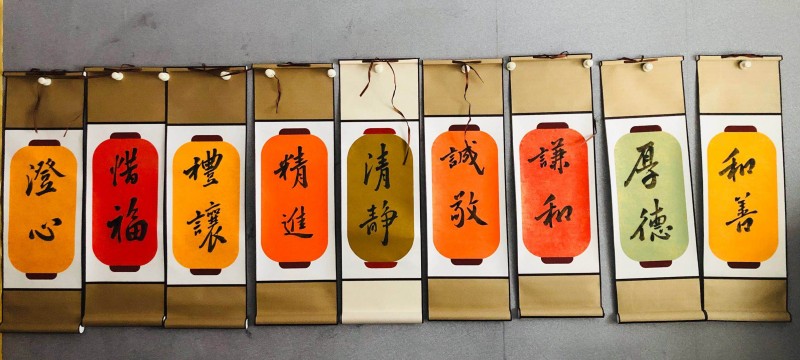 澄心
惜福
禮讓
精進
清静
誠敬
謙和
厚德
和善